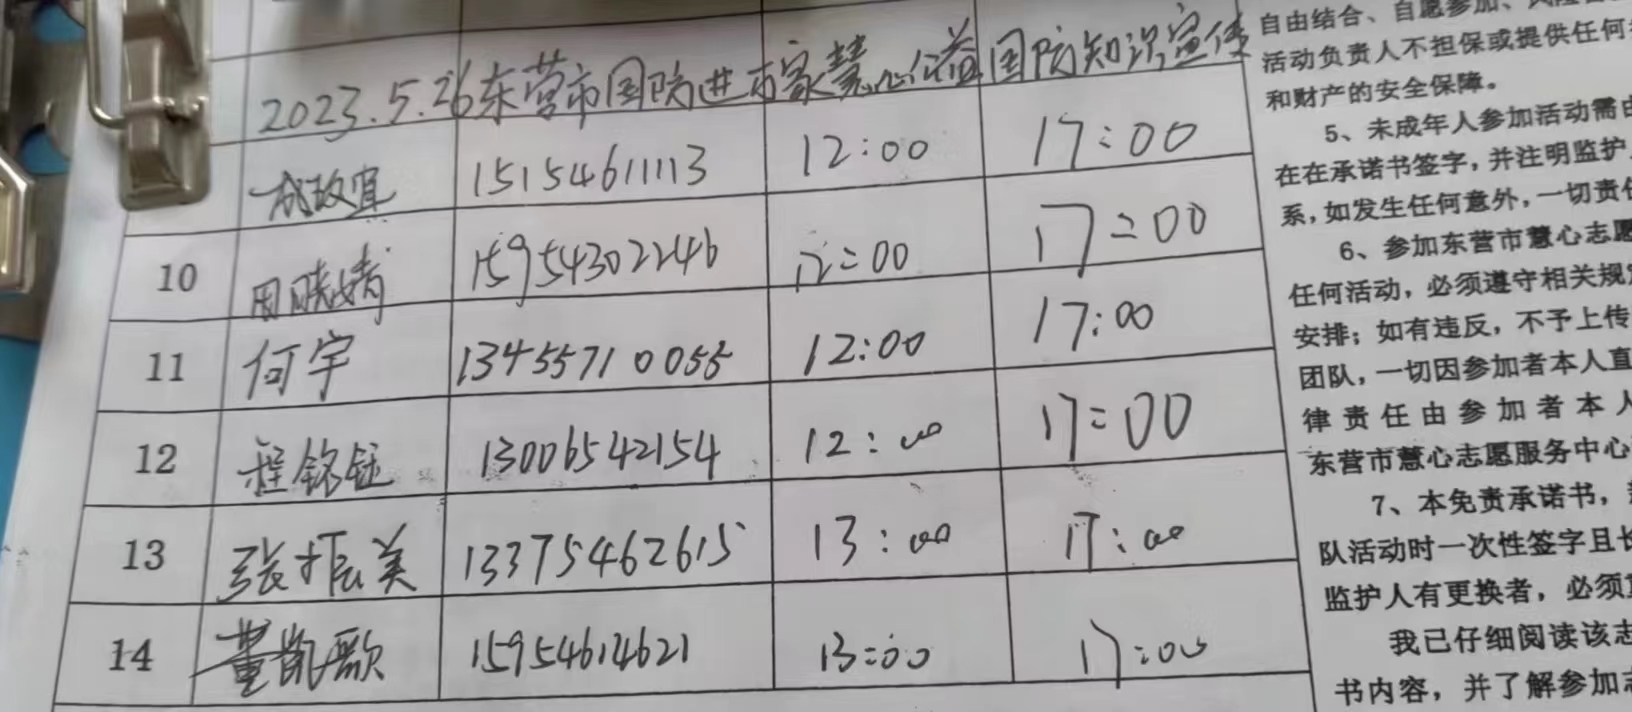 2023.5.26东营市国防进万家慧心公益国防知识宣传
成玫宜 15154611113 12:00 17:00
10 周晓婧 15954302246 12:00 17:00
11 何宇 13455710055 12:00 17:00
12 程铭钰 13006542154 12:00 17:00
13 张振美 13375462615 13:00 17:00
14 董凯歌 15954614621 13:00 17:00
自由结合、自愿参加、风险
活动负责人不担保或提供任何
和财产的安全保障。
5、未成年人参加活动需由
在在承诺书签字,并注明监护
系,如发生任何意外,一切责任
6、参加东营市慧心志愿
任何活动,必须遵守相关规定
安排;如有违反,不予上传
团队,一切因参加者本人直
律责任由参加者本人
东营市慧心志愿服务中心
7、本免责承诺书,
队活动时一次性签字且长
监护人有更换者,必须
我已仔细阅读该志
书内容,并了解参加志